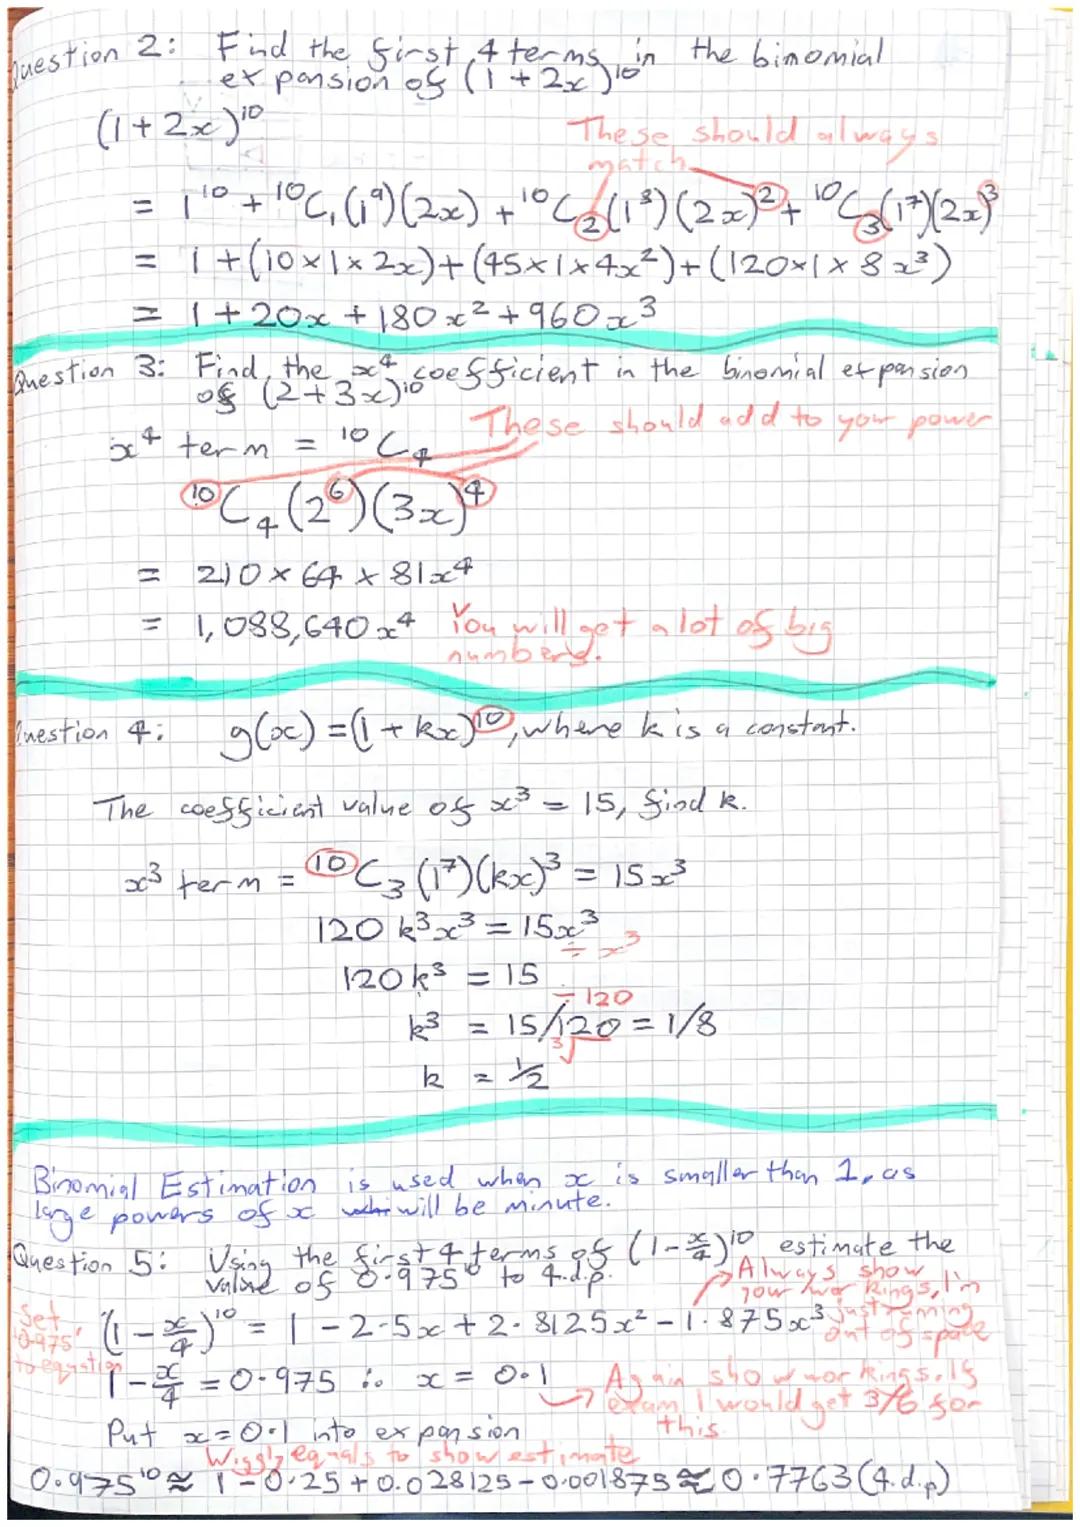 Question 2: Find the first 4 terms in the binomial
expansion of (1 + 2x)¹⁰
(1 + 2x)¹⁰
These should always
match
= 1¹⁰ + ¹⁰C₁(1⁹)(2x) + ¹⁰C₂(1⁸)(2x)² + ¹⁰C₃(1⁷)(2x)³
= 1 + (10×1×2x) + (45×1×4x²) + (120×1×8x³)
= 1 + 20x + 180x² + 960x³
Question 3: Find the x⁴ coefficient in the binomial expansion
of (2+3x)¹⁰
These should add to your power
x⁴ term = ¹⁰C₄
¹⁰C₄(2⁶)(3x)⁴
= 210 × 64 × 81x⁴
= 1,088,640x⁴ You will get a lot of big
numbers.
Question 4: g(x) = (1 + kx)¹⁰, where k is a constant.
The coefficient value of x³ = 15, find k.
x³ term = ¹⁰C₃(1⁷)(kx)³ = 15x³
120k³x³ = 15x³
÷ x³
120k³ = 15
÷ 120
k³ = 15/120 = 1/8
³√
k = 1/2
Binomial Estimation is used when x is smaller than 1, as
large powers of x will be minute.
Question 5: Using the first 4 terms of (1 - x/4)¹⁰ estimate the
value of 0.975¹⁰ to 4.d.p.
Always show
your workings, I'm
just running
out of space
Set
'0.975'
to equation
(1 - x/4)¹⁰ = 1 - 2.5x + 2.8125x² - 1.875x³
1 - x/4 = 0.975 ∴ x = 0.1
Again show workings. If
exam I would get 3/6 for
this.
Put x = 0.1 into expansion
Wiggly equals to show estimate
0.975¹⁰ ≈ 1 - 0.25 + 0.028125 - 0.001875 ≈ 0.7763 (4.d.p)